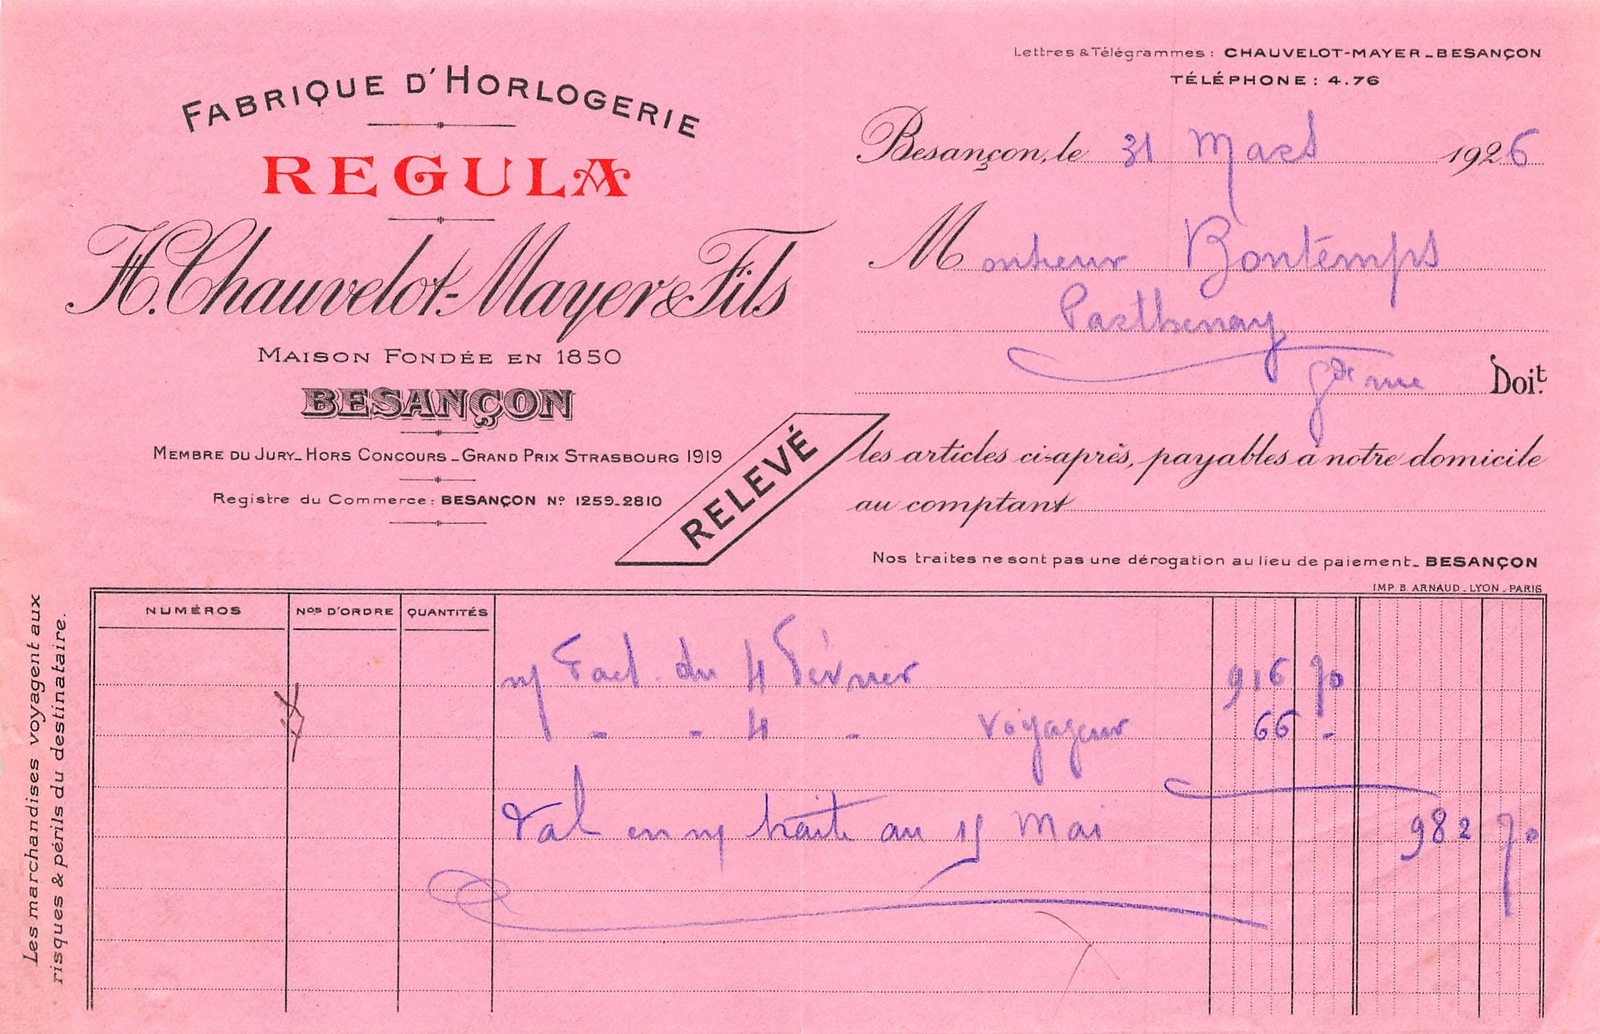 Lettres & Télégrammes : CHAUVELOT-MAYER_BESANÇON
TÉLÉPHONE : 4.76
FABRIQUE D'HORLOGERIE
REGULA
H. Chauvelot-Mayer & Fils
MAISON FONDÉE EN 1850
BESANÇON
MEMBRE DU JURY_HORS CONCOURS_GRAND PRIX STRASBOURG 1919
Registre du Commerce : BESANÇON Nº 1259_2810
RELEVÉ
Besançon, le 31 Mars 1926
Monsieur Bontemps
Parthenay
Doit.
les articles ci-après, payables à notre domicile
au comptant
Nos traites ne sont pas une dérogation au lieu de paiement_ BESANÇON
IMP. B. ARNAUD_LYON_PARIS
NUMÉROS Nos D'ORDRE QUANTITÉS
n/ Fact. du 4 Février 916 70
- - 4 - Voyageur 66 -
Val en n/ traite au 15 Mai 982 70
Les marchandises voyagent aux
risques & périls du destinataire.